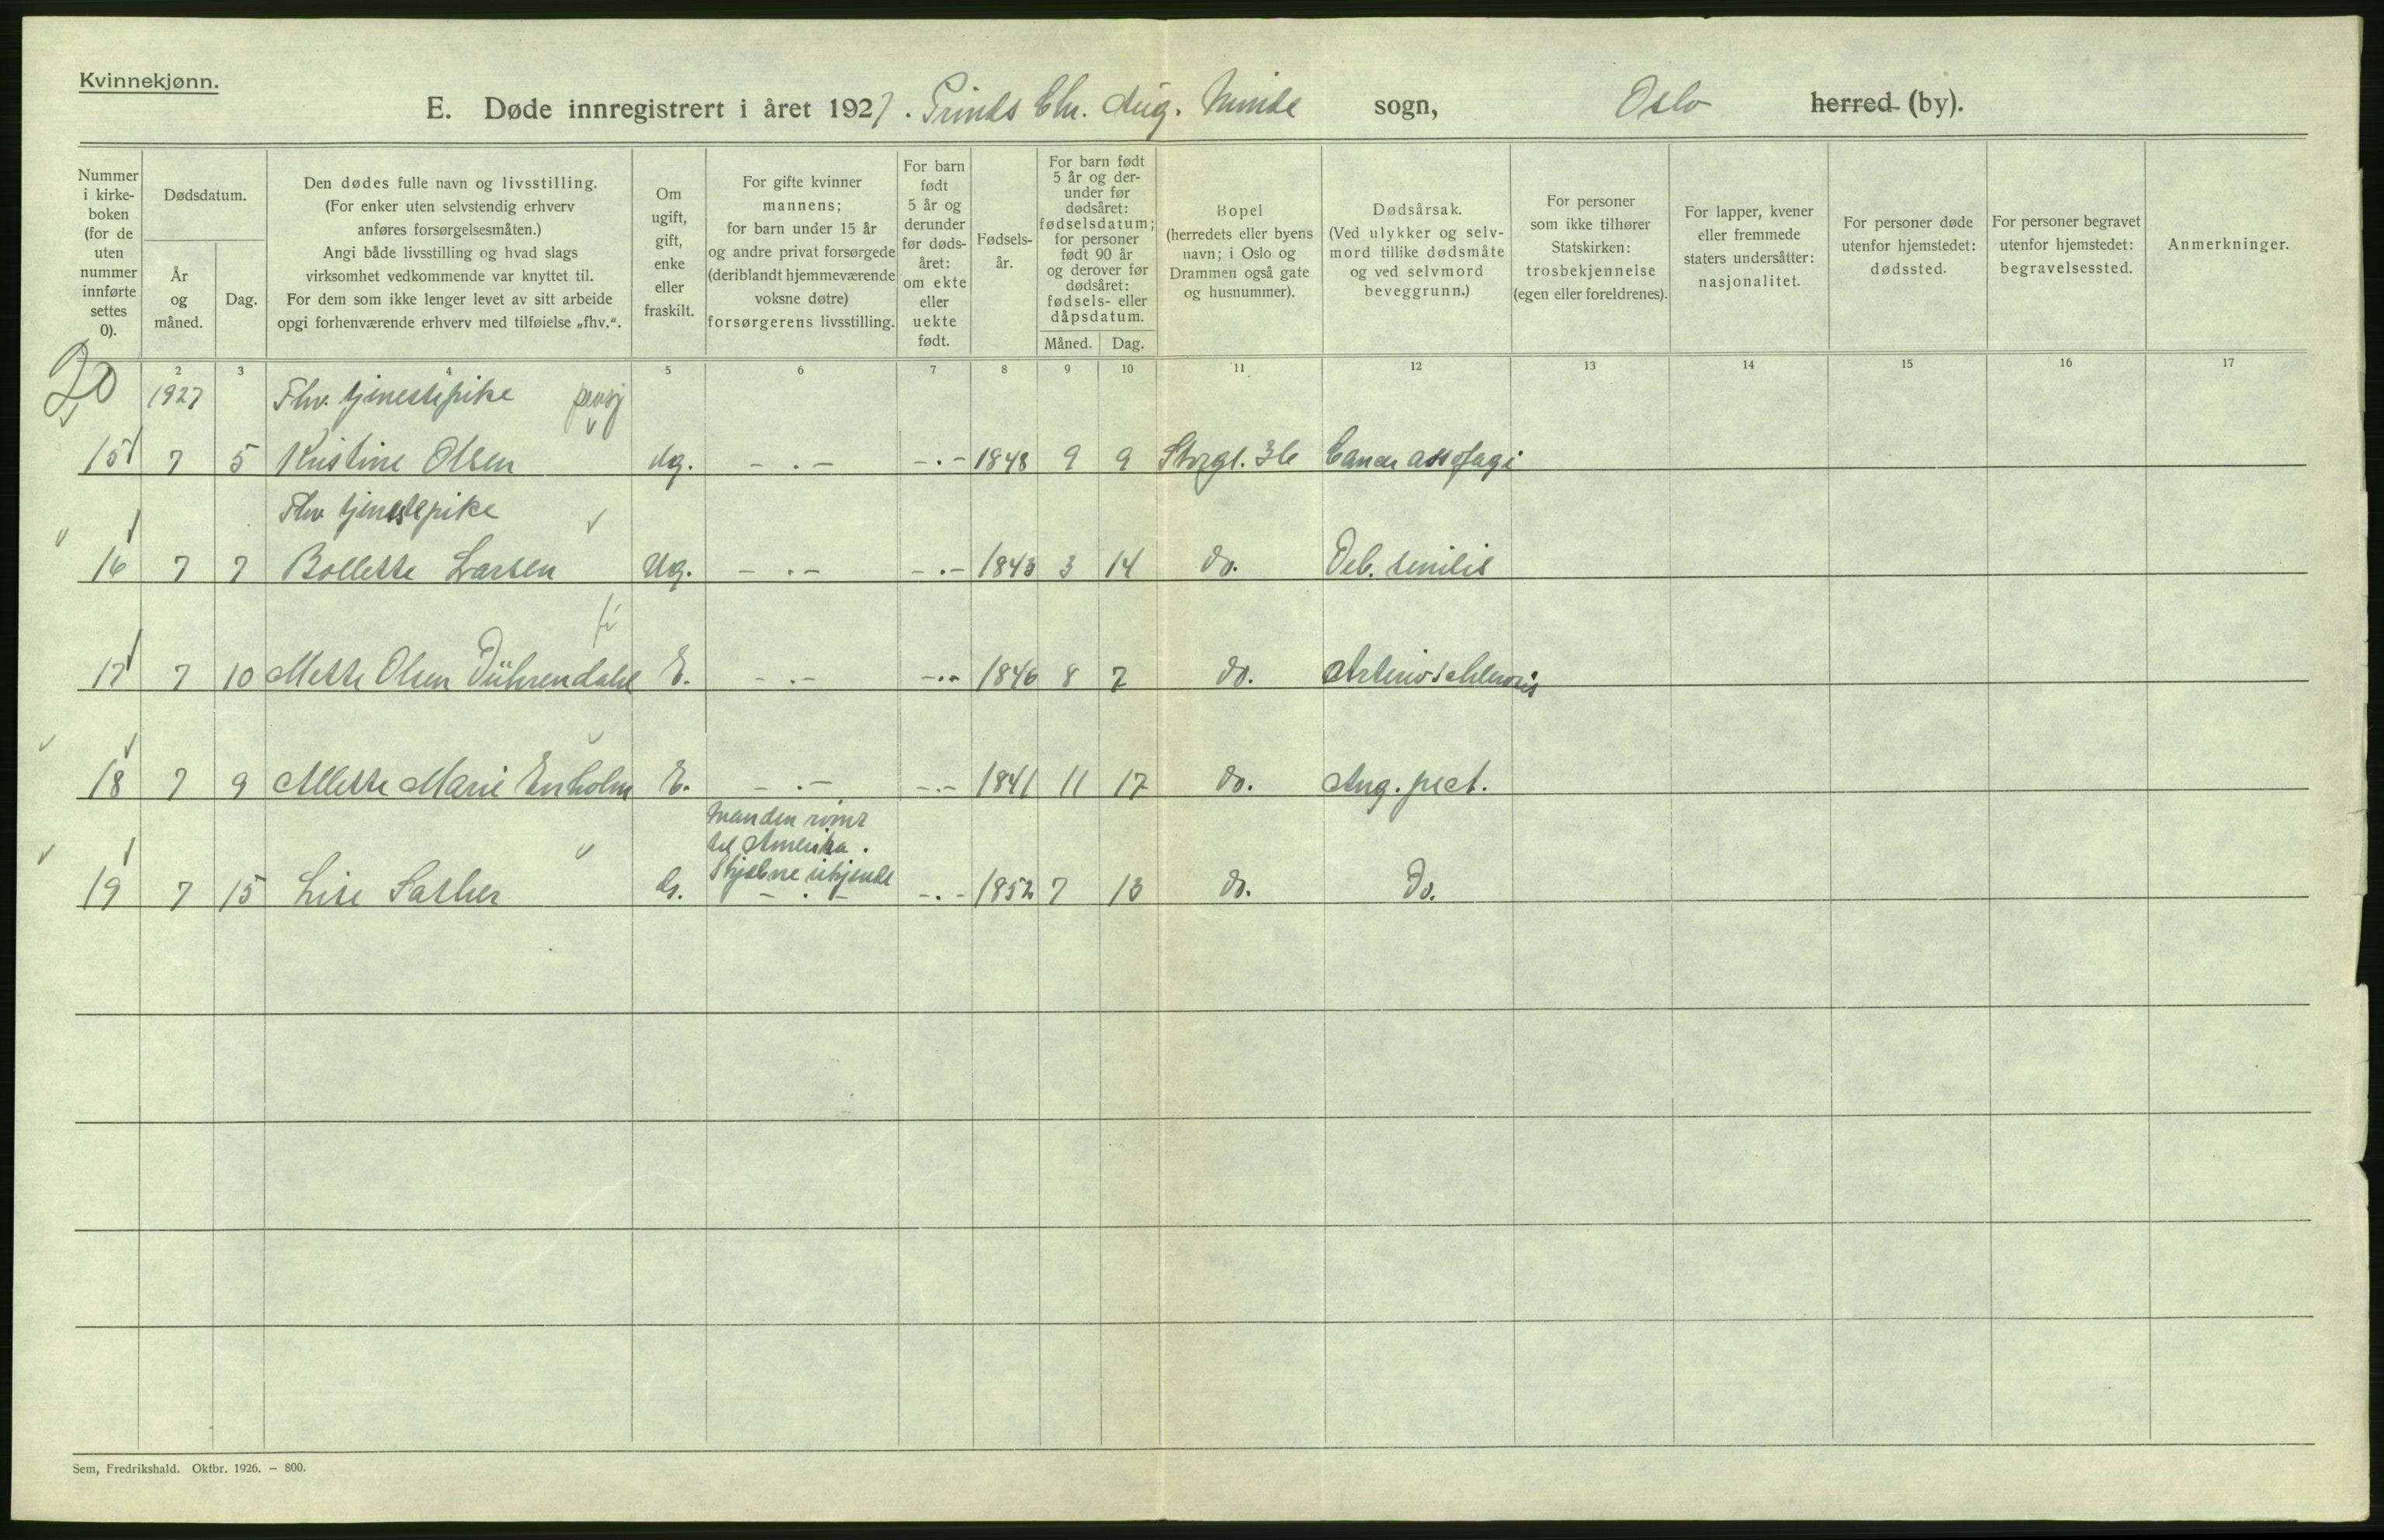 Kvinnekjønn.
E. Døde innregistrert i året 1927. Prinds Chr. Aug. Minde sogn, Oslo herred (by).
Nummer
i kirke-
boken
(for de
uten
nummer
innførte
settes
0).
Dødsdatum.
År
og
måned.
Dag.
Den dødes fulle navn og livsstilling.
(For enker uten selvstendig erhverv
anføres forsørgelsesmåten.)
Angi både livsstilling og hvad slags
virksomhet vedkommende var knyttet til.
For dem som ikke lenger levet av sitt arbeide
opgi forhenværende erhverv med tilføielse „fhv.“.
Om
ugift,
gift,
enke
eller
fraskilt.
For gifte kvinner
mannens;
for barn under 15 år
og andre privat forsørgede
(deriblandt hjemmeværende
voksne døtre)
forsørgerens livsstilling.
For barn
født
5 år og
derunder
før døds-
året:
om ekte
eller
uekte
født.
Fødsels-
år.
For barn født
5 år og der-
under før
dødsåret:
fødselsdatum;
for personer
født 90 år
og derover før
dødsåret:
fødsels- eller
dåpsdatum.
Måned. Dag.
Bopel
(herredets eller byens
navn; i Oslo og
Drammen også gate
og husnummer).
Dødsårsak.
(Ved ulykker og selv-
mord tillike dødsmåte
og ved selvmord
beveggrunn.)
For personer
som ikke tilhører
Statskirken:
trosbekjennelse
(egen eller foreldrenes).
For lapper, kvener
eller fremmede
staters undersåtter:
nasjonalitet.
For personer døde
utenfor hjemstedet:
dødssted.
For personer begravet
utenfor hjemstedet:
begravelsessted.
Anmerkninger.
2 3 4 5 6 7 8 9 10 11 12 13 14 15 16 17
20 1927 Fhv. tjenestepike pensj
15 7 5 Kristine Olsen ug. - . - - . - 1848 9 9 Storgt. 36 Cancer assofagi
Fhv tjenestepike
16 7 7 Bollette Larsen Ug. - . - - . - 1843 3 14 do. Deb. senilis
17 7 10 Mette Olsen Dührendahl E. - . - - . - 1846 8 7 do. Arterioschlerosis
18 7 9 Allette Marie Enholm E. - . - - . - 1841 11 17 do. Ang. pect.
Manden rømt
til Amerika.
Skjebne ukjendt
19 7 15 Lise Sather G. - . - - . - 1852 7 13 do. Do.
Sem, Fredrikshald. Oktbr. 1926. — 800.